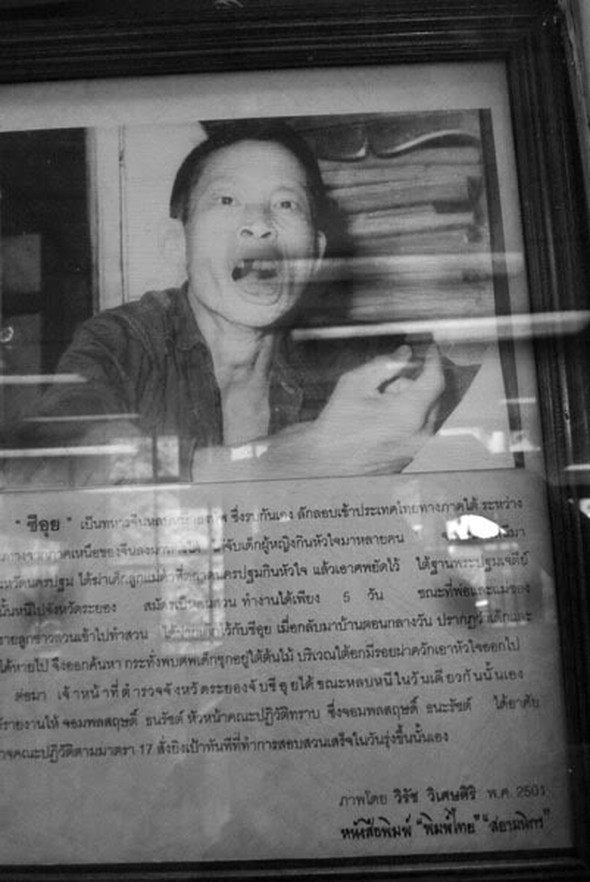 " ซีอุย " เป็นทหารจีนหลบ ซึ่งรบกันเอง ลักลอบเข้าประเทศไทยทางภาคใต้ ระหว่าง
ทางจากภาคเหนือของจีนลงมา จับเด็กผู้หญิงกินหัวใจมาหลายคน หนีมา
หวัดนครปฐม ได้ฆ่าเด็กลูกแม่ค้าที่ตลาดนครปฐมกินหัวใจ แล้วเอาศพยัดไว้ ใต้ฐานพระปฐมเจดีย์
นั้นหนีไปจังหวัดระยอง สมัครเป็นคนสวน ทำงานได้เพียง 5 วัน ขณะที่พ่อและแม่ของ
ลูกชาวสวนเข้าไปทำสวน ไว้กับซีอุย เมื่อกลับมาบ้านตอนกลางวัน ปรากฏว่าเด็กและ
ได้หายไป จึงออกค้นหา กระทั่งพบศพเด็กซุกอยู่ใต้ต้นไม้ บริเวณใต้อกมีรอยผ่าควักเอาหัวใจออกไป
ต่อมา เจ้าหน้าที่ตำรวจจังหวัดระยองจับซีอุยได้ขณะหลบหนีในวันเดียวกันนั้นเอง
รายงานให้ จอมพลสฤษดิ์ ธนรัชต์ หัวหน้าคณะปฏิวัติทราบ ซึ่งจอมพลสฤษดิ์ ธนะรัชต์ ได้อาศัย
คณะปฏิวัติตามมาตรา 17 สั่งยิงเป้าทันทีที่ทำการสอบสวนเสร็จในวันรุ่งขึ้นนั้นเอง
ภาพโดย วิรัช วิเศษศิริ พ.ศ. 2501
หนังสือพิมพ์ "พิมพ์ไทย" "สยามนิกร"